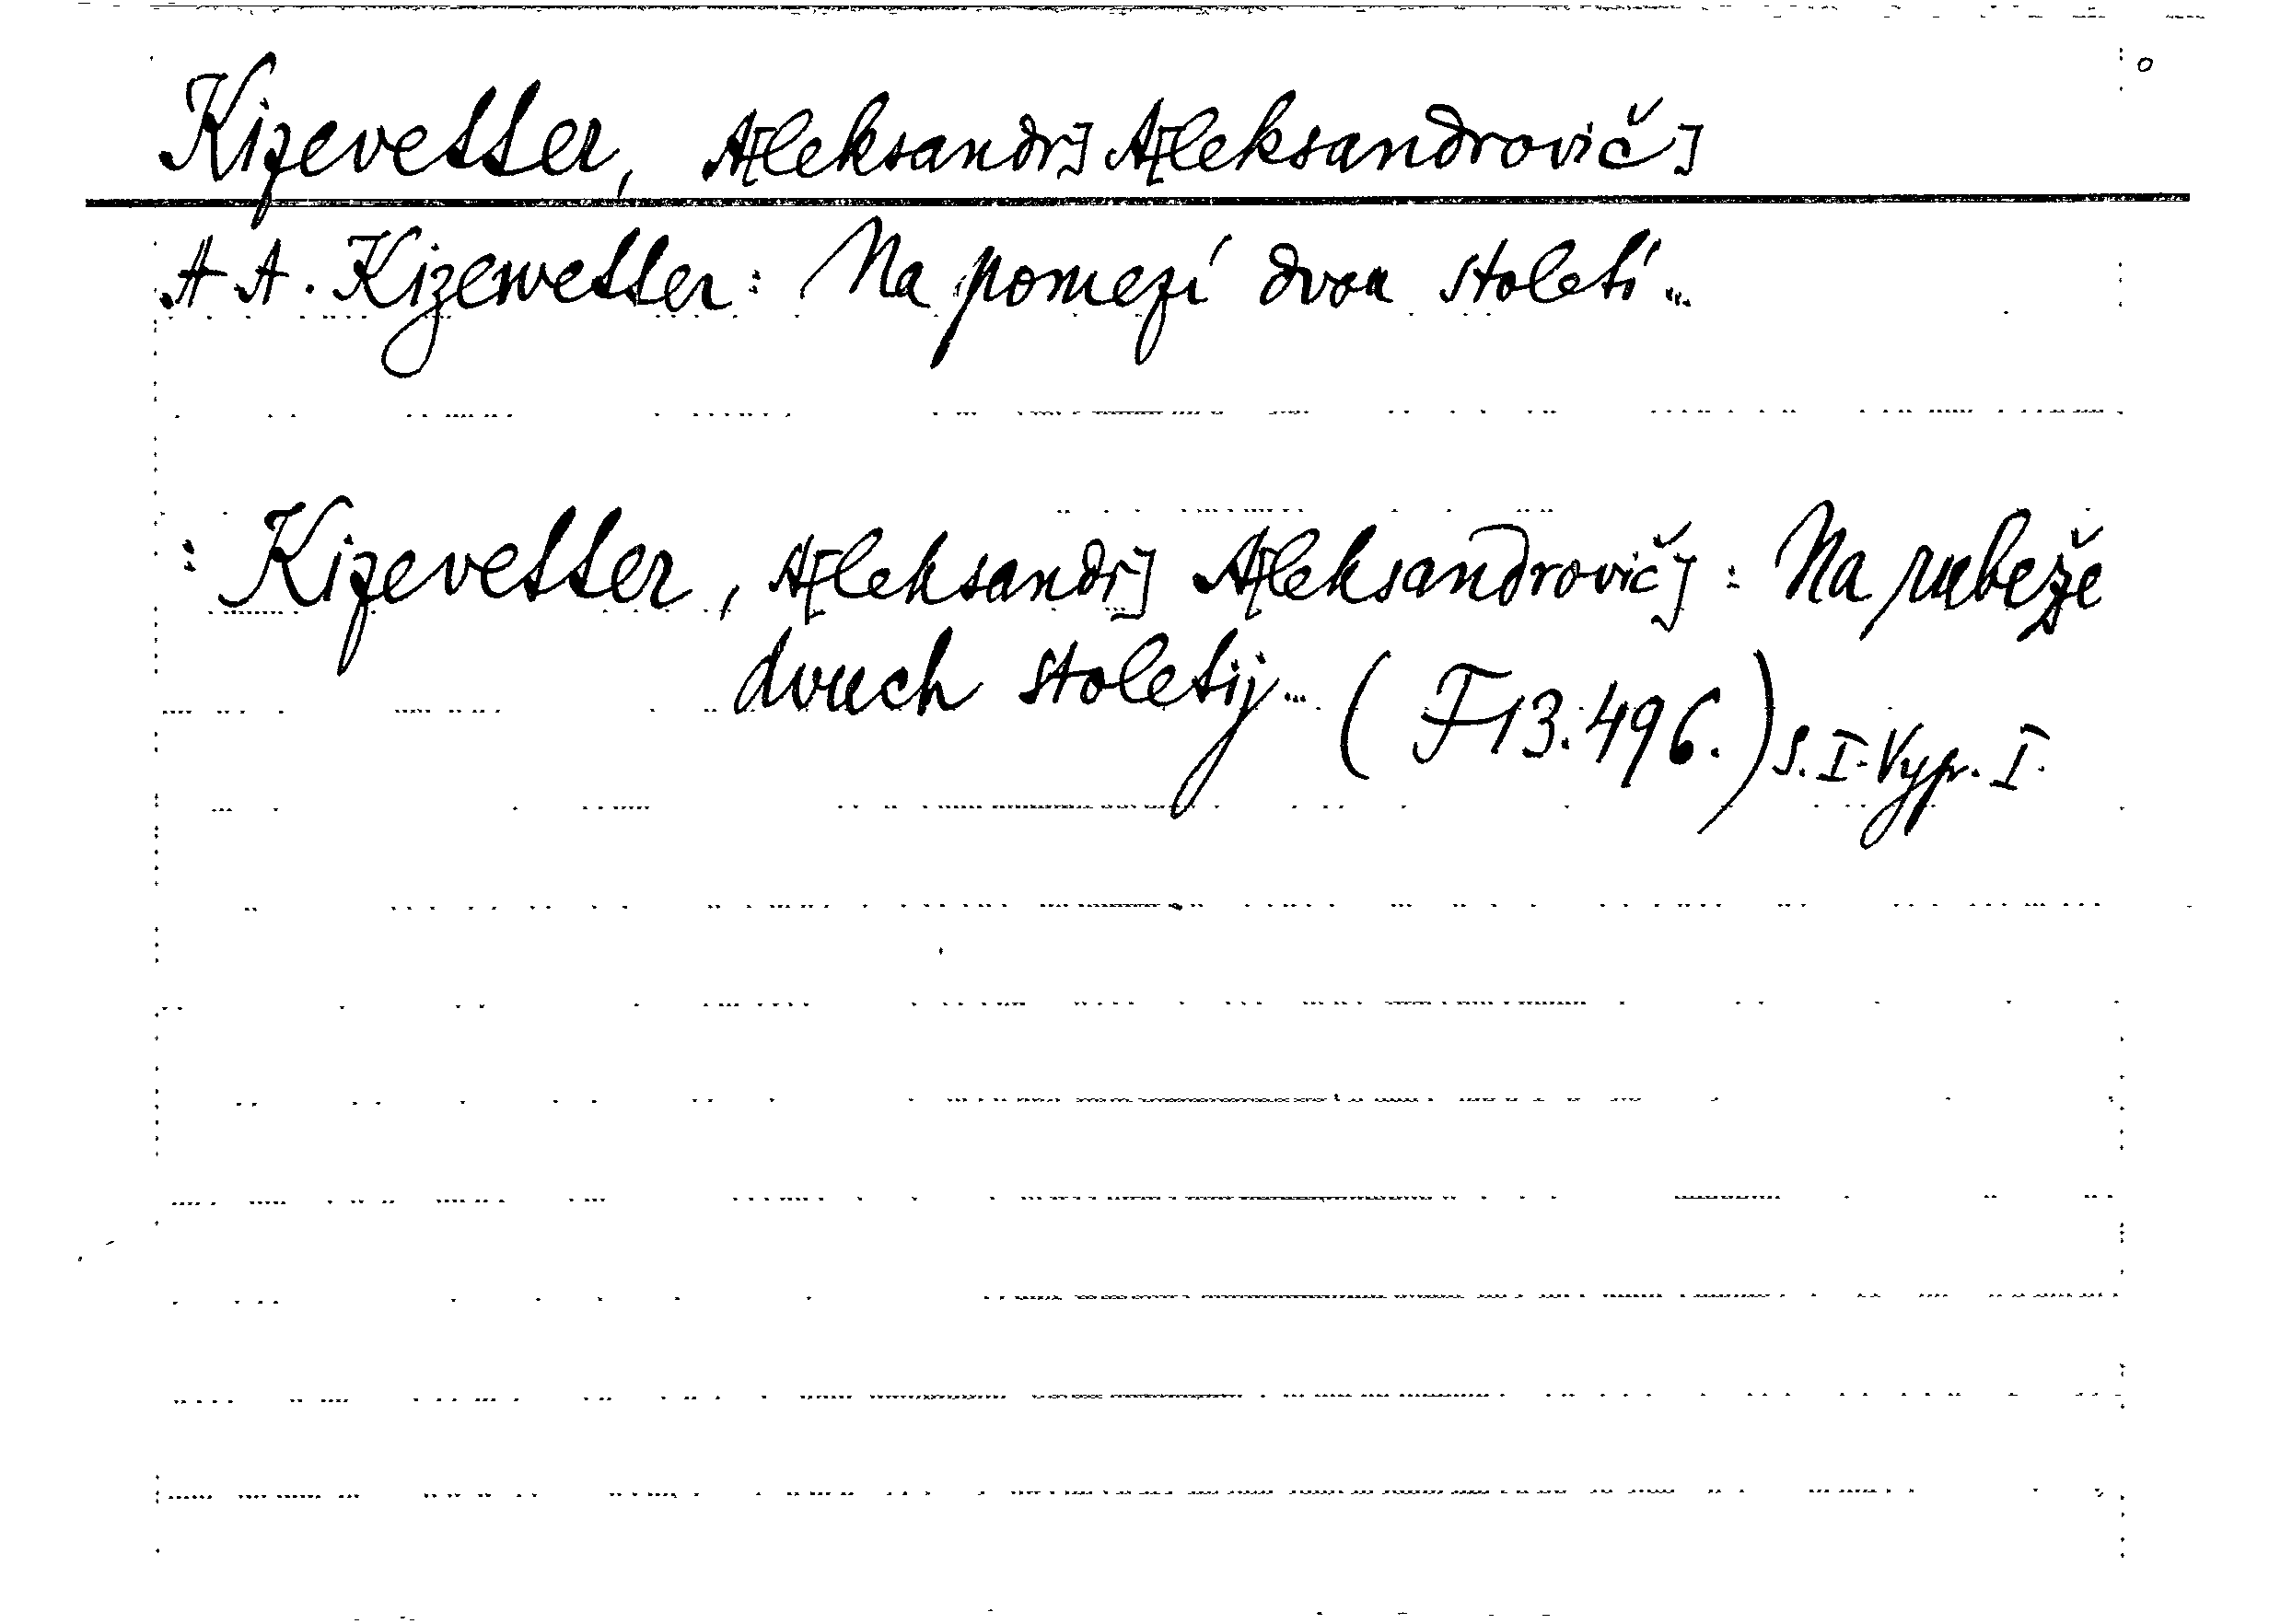 Kizevetter, A[leksandr] A[leksandrovič]
A A. Kizewetter: Na pomezí dvou století...
: Kizevetter, A[leksandr] A[leksandrovič]: Na rubeže
dvuch stoletij... (F 13.496.) S. I. Vyp. I.